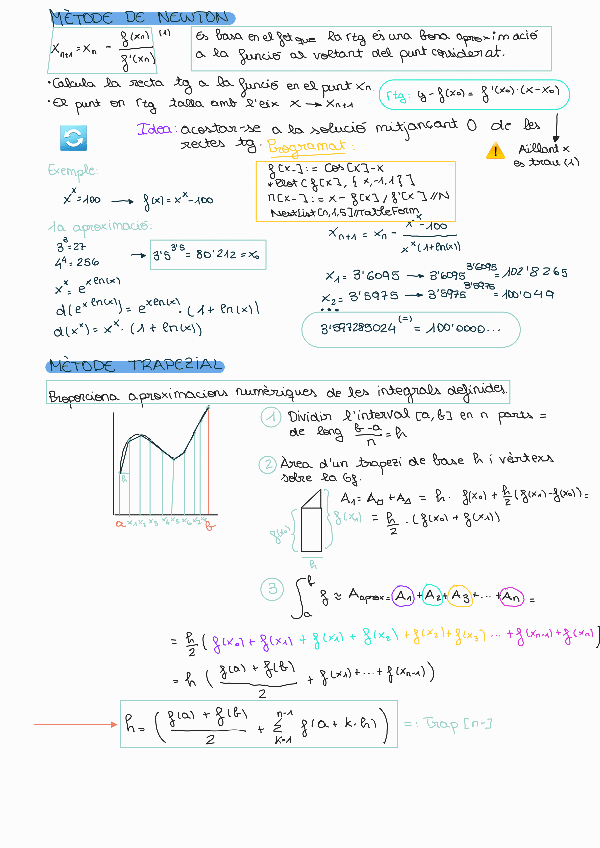 MÈTODE DE NEWTON
Xn+1 = Xn - f(xn) / f'(xn) (1)
es basa en el fet que la rtg és una bona aproximació
a la funció al voltant del punt considerat.
• Calcula la recta tg a la funció en el punt xn.
• El punt on rtg talla amb l'eix X → Xn+1
rtg: y - f(x0) = f'(x0) · (x - x0)
Idea: acostar-se a la solució mitjançant 0 de les
rectes tg.
Aïllant x
es treu (1)
Programat:
f[x-] := Cos[x] - x
* Plot[f[x], {x,-1,1}]
n[x-] := x - f[x] / f'[x] //N
NestList[n,1,5]//TableForm
Exemple:
x^x = 100 → f(x) = x^x - 100
1a aproximació:
3^3 = 27
4^4 = 256
→ 3'5^3'5 = 80'212 = x0
x^x = e^(x ln(x))
d(e^(x ln(x))) = e^(x ln(x)) · (1 + ln(x))
d(x^x) = x^x · (1 + ln(x))
Xn+1 = Xn - (x^x - 100) / (x^x (1 + ln(x)))
X1 = 3'6095 → 3'6095^3'6095 = 102'8265
X2 = 3'5975 → 3'5975^3'5975 = 100'049
...
3'597285024^(=) = 100'0000...
MÈTODE TRAPEZIAL
Proporciona aproximacions numèriques de les integrals definides.
h
a x1 x2 x3 x4 x5 x6 x7 x8 b
1 Dividir l'interval [a,b] en n parts =
de long (b-a)/n = h
2 Àrea d'un trapezi de base h i vèrtexs
sobre la Gf.
f(x0) f(x1)
h
A1 = A□ + A△ = h · f(x0) + h/2 (f(x1) - f(x0)) =
= h/2 · (f(x0) + f(x1))
3 ∫a^b f ≈ Aaprox = A1 + A2 + A3 + ... + An =
= h/2 (f(x0) + f(x1) + f(x1) + f(x2) + f(x2) + f(x3) ... + f(xn-1) + f(xn))
= h ( (f(a) + f(b))/2 + f(x1) + ... + f(xn-1))
h = ( (f(a) + f(b))/2 + Σ k=1 n-1 f(a + k·h) ) =: Trap[n-]